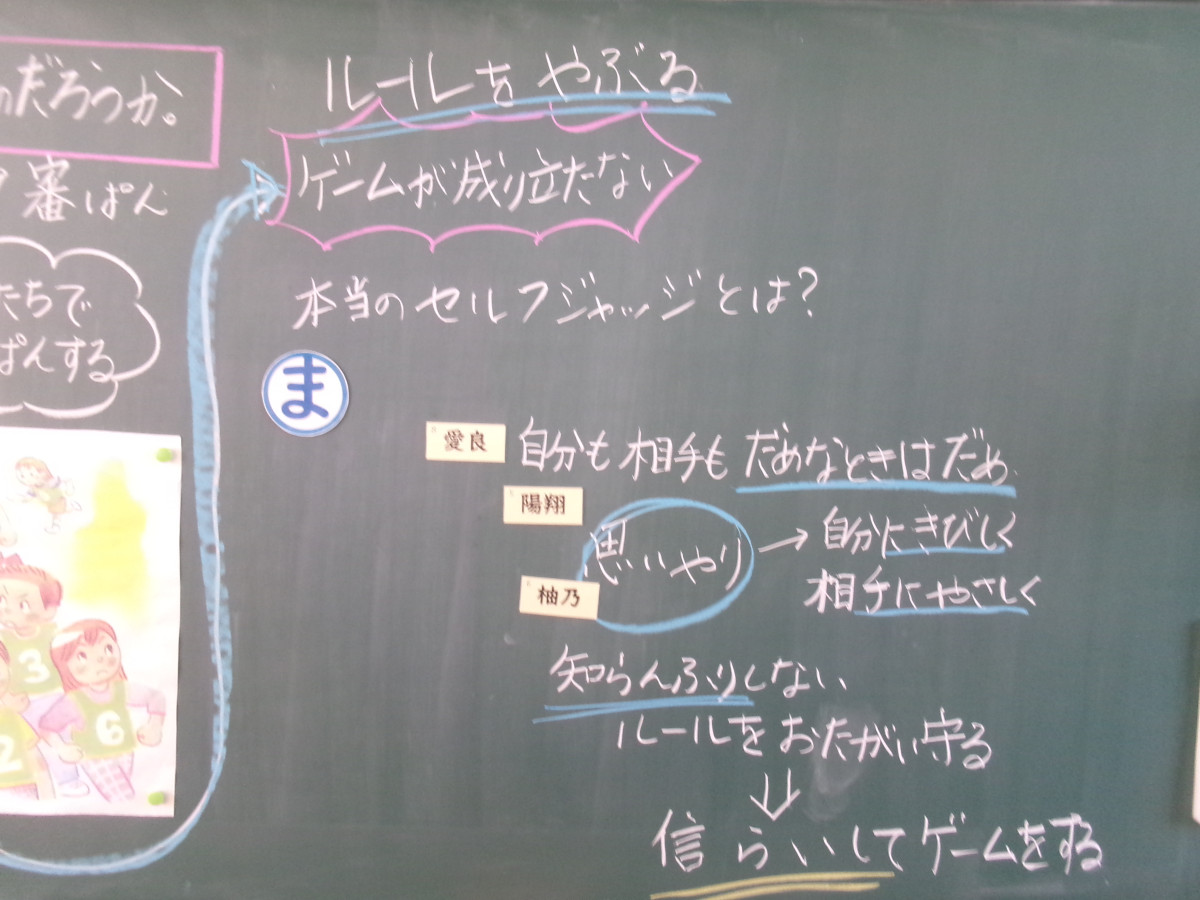 のだろうか。
審ぱん
たちで
ぱんする
3
6
2
ルールをやぶる
ゲームが成り立たない
本当のセルフジャッジとは?
ま
愛良 自分も相手もだめなときはだめ
陽翔
思いやり → 自分にきびしく
相手にやさしく
柚乃
知らんふりしない
ルールをおたがい守る
信らいしてゲームをする